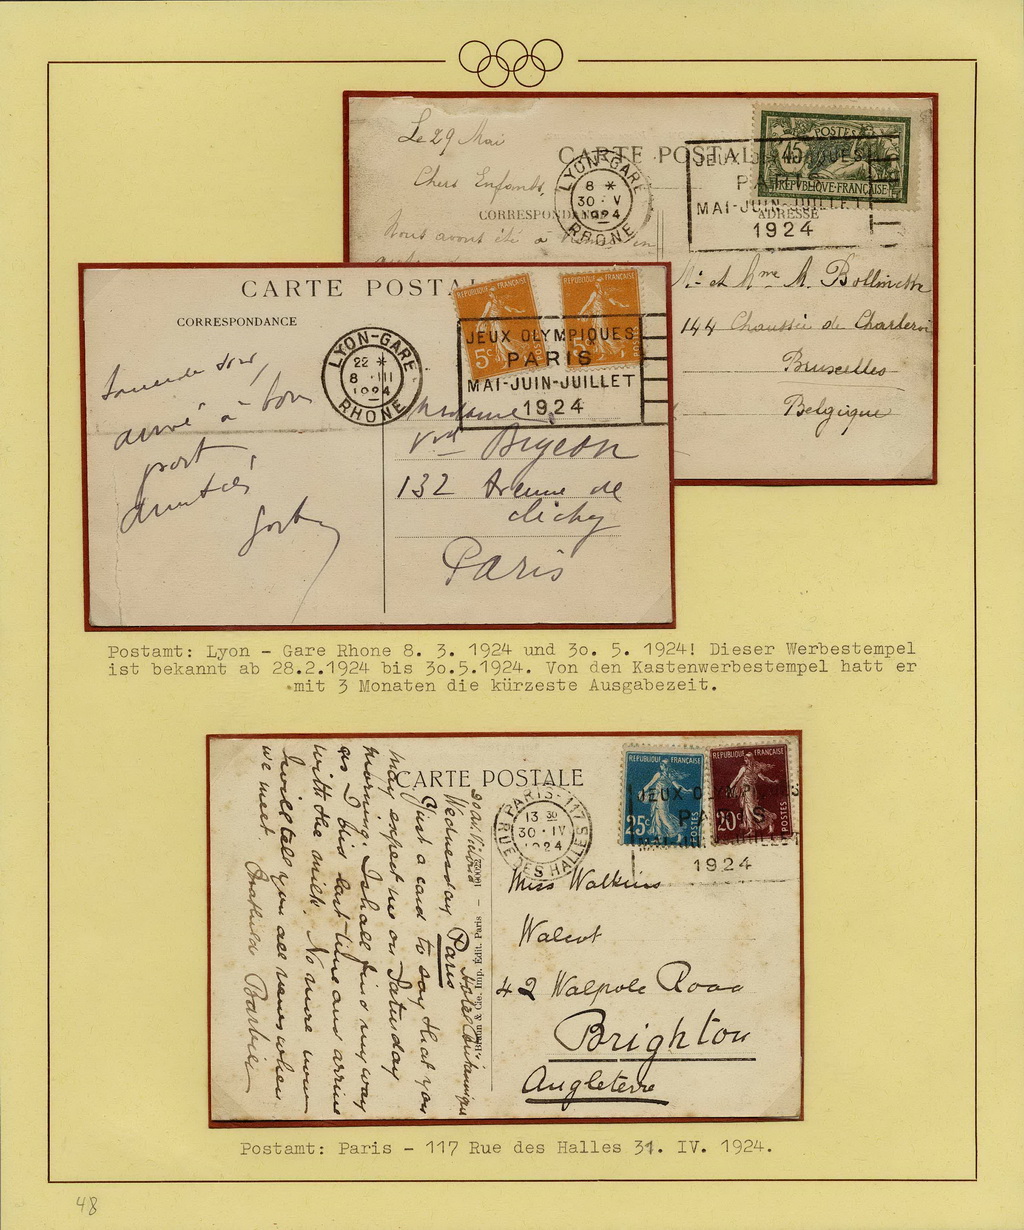 Le 29 Mai
CARTE POSTALE
Chers Enfants,
CORRESPONDANCE
Nous avons été à en
LYON-GARE
8 *
30 · V
1924
RHONE
POSTES
45
REPUBLIQUE FRANÇAISE
JEUX OLYMPIQUES
PARIS
MAI-JUIN-JUILLET
1924
ADRESSE
Mr et Mme A.
144 Chaussée de Charleroi
Bruxelles
Belgique
CARTE POSTALE
CORRESPONDANCE
LYON-GARE
22 *
8 · III
1924
RHONE
REPUBLIQUE FRANÇAISE
5c
POSTES
REPUBLIQUE FRANÇAISE
5c
POSTES
JEUX OLYMPIQUES
PARIS
MAI-JUIN-JUILLET
1924
arrivé à bon
port
amitiés
Madame
Vve Bryeon
132 Avenue de
Clichy
Paris
Postamt: Lyon - Gare Rhone 8. 3. 1924 und 3o. 5. 1924! Dieser Werbestempel
ist bekannt ab 28.2.1924 bis 3o.5.1924. Von den Kastenwerbestempel hatt er
mit 3 Monaten die kürzeste Ausgabezeit.
CARTE POSTALE
Hotel Britannique
Paris
Wednesday
Just a card to say that you
may expect me on Saturday
morning. I shall find my way
as I did last time and arrive
with the milk. No more now
I will tell you all news when
we meet.
Braun & Cie, Imp. Edit. Paris
PARIS · 117
13 30
30 · IV
1924
RUE DES HALLES
REPUBLIQUE FRANÇAISE
25c
POSTES
REPUBLIQUE FRANÇAISE
20c
POSTES
JEUX OLYMPIQUES
PARIS
MAI-JUIN-JUILLET
1924
Miss Watkins
Walcot
42 Walpole Road
Brighton
Angleterre
Postamt: Paris - 117 Rue des Halles 31. IV. 1924.
48